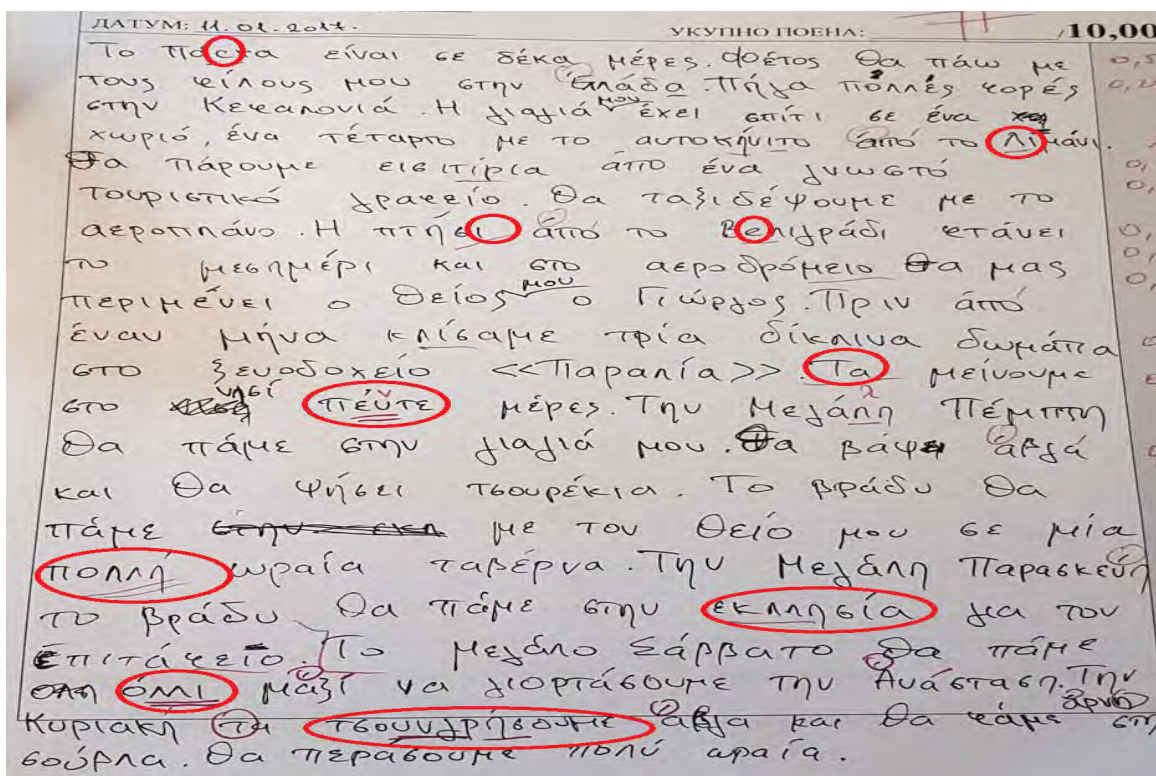 ДАТУМ: 11.01.2017. УКУПНО ПОЕНА: /10,00
Το Πάσχα είναι σε δέκα μέρες. Φέτος θα πάω με
τους φίλους μου στην Ελλάδα. Πήγα πολλές φορές
στην Κεφαλονιά. Η γιαγιά μου έχει σπίτι σε ένα
χωριό, ένα τέταρτο με το αυτοκήνιτο από το Λιμάνι.
Θα πάρουμε εισιτίρια από ένα γνωστό
τουριστικό γραφείο. Θα ταξιδέψουμε με το
αεροπλάνο. Η πτήσι από το Βελιγράδι φτάνει
το μεσημέρι και στο αεροδρόμειο θα μας
περιμένει ο θείος μου ο Γιώργος. Πριν από
έναν μήνα κλίσαμε τρία δίκλινα δωμάτια
στο ξενοδοχείο <<Παραλία>>. Τα μείνουμε
στο νησί πέντε μέρες. Την Μεγάλη Πέμπτη
θα πάμε στην γιαγιά μου. Θα βάψει αβγά
και θα ψήσει τσουρέκια. Το βράδυ θα
πάμε με τον θείο μου σε μία
πολλή ωραία ταβέρνα. Την Μεγάλη Παρασκευή
το βράδυ θα πάμε στην εκλλησία για τον
Επιτάφειο. Το Μεγάλο Σάββατο θα πάμε
όλλι μαζί να γιορτάσουμε την Ανάσταση. Την
Κυριακή τα τσουνγρήσουμε αβγα και θα φάμε αρνί στη
σούβλα. Θα περάσουμε πολύ ωραία.